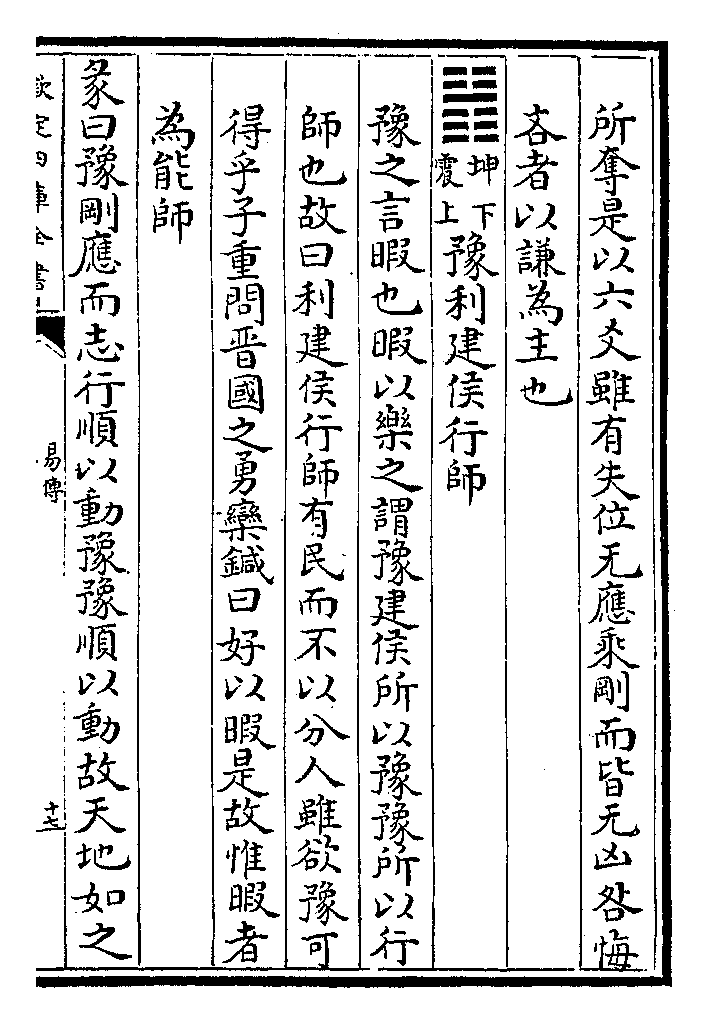 所奪是以六爻雖有失位无應乘剛而皆无凶咎悔
吝者以謙為主也
䷏坤下震上豫利建侯行師
豫之言暇也暇以樂之謂豫建侯所以豫豫所以行
師也故曰利建侯行師有民而不以分人雖欲豫可
得乎子重問晋國之勇欒鍼曰好以暇是故惟暇者
為能師
彖曰豫剛應而志行順以動豫豫順以動故天地如之
欽定四庫全書
易傳
十七